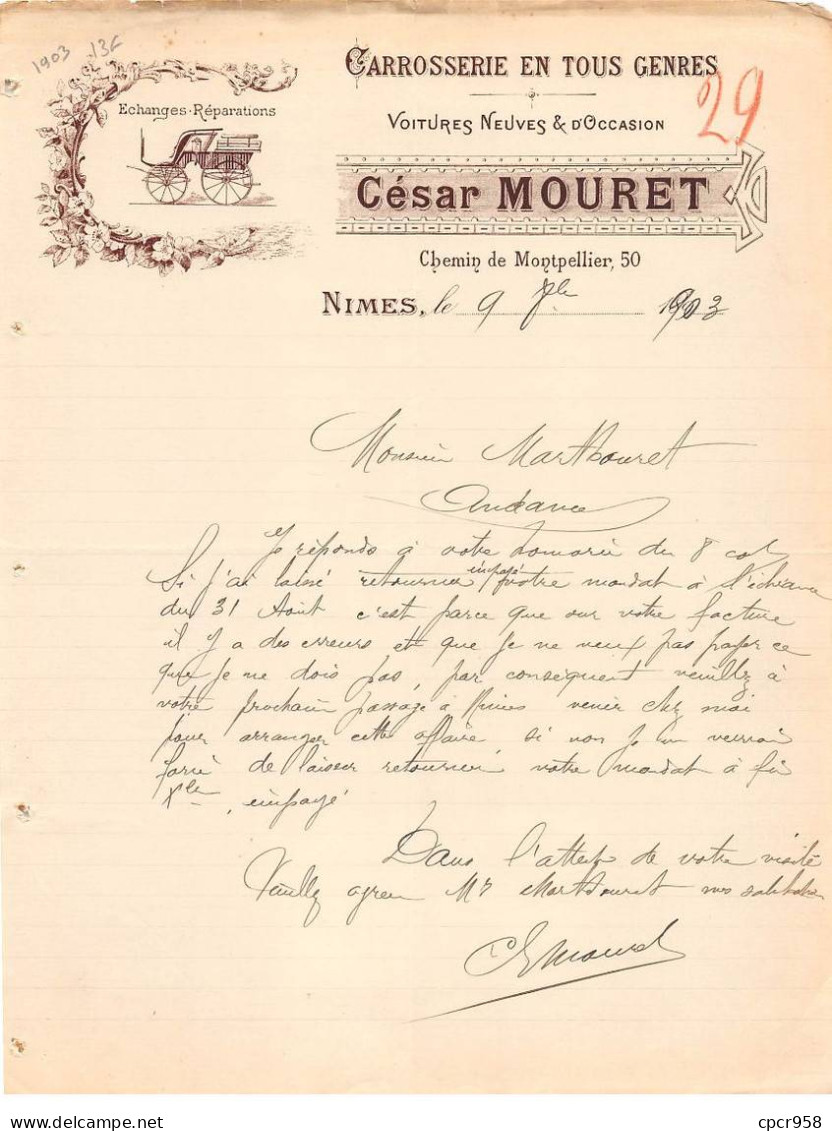 1903 13f
Echanges-Réparations
CARROSSERIE EN TOUS GENRES
29
VOITURES NEUVES & D'OCCASION
César MOURET
Chemin de Montpellier, 50
NIMES, le 9 1903
Monsieur Marthouret
Andance
Je réponds à votre du 8 cot
Si j'ai laissé retourner impayé votre mandat à l'échéance
du 31 Août c'est parce que sur votre facture
il y a des erreurs et que je ne veux pas payer ce
que je ne dois pas, par conséquent veuillez à
votre prochain passage à Nimes venir chez moi
pour arranger cette affaire si non je me verrai
forcé de laisser retourner votre mandat à fin
Xbre, impayé
Dans l'attente de votre visite
Veuillez agréer Mr Marthouret mes salutations
C Mouret
cpcr958